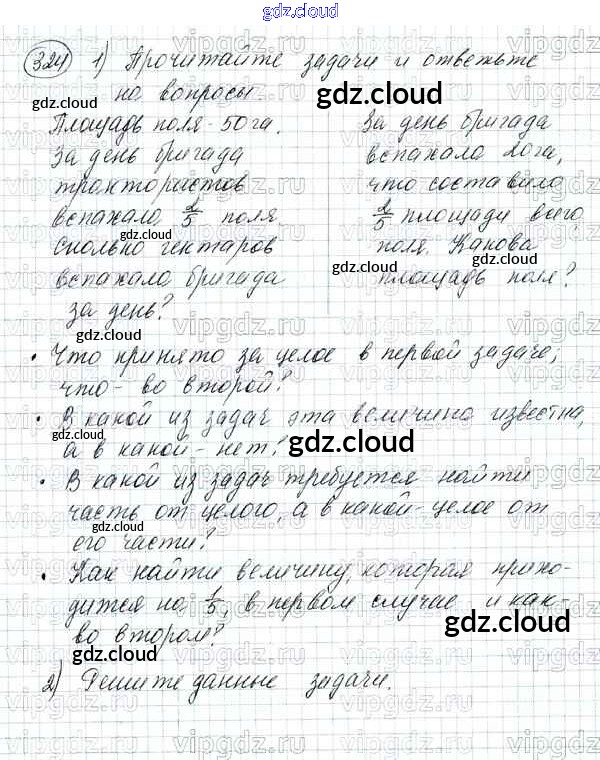 gdz.cloud
324 1) Прочитайте задачи и ответьте
на вопросы.
Площадь поля - 50 га.
За день бригада
трактористов
вспахала 2/5 поля.
Сколько гектаров
вспахала бригада
за день?
За день бригада
вспахала 20 га,
что составило
2/5 площади всего
поля. Какова
площадь поля?
• Что принято за целое в первой задаче,
что - во второй?
• В какой из задач эта величина известна,
а в какой - нет?
• В какой из задач требуется найти
часть от целого, а в какой - целое от
его части?
• Как найти величину, которая прихо-
дится на 1/5, в первом случае и как -
во втором?
2) Решите данные задачи.
gdz.cloud
gdz.cloud
gdz.cloud
gdz.cloud
gdz.cloud
gdz.cloud
gdz.cloud
gdz.cloud
gdz.cloud
gdz.cloud
gdz.cloud
gdz.cloud
vipgdz.ru